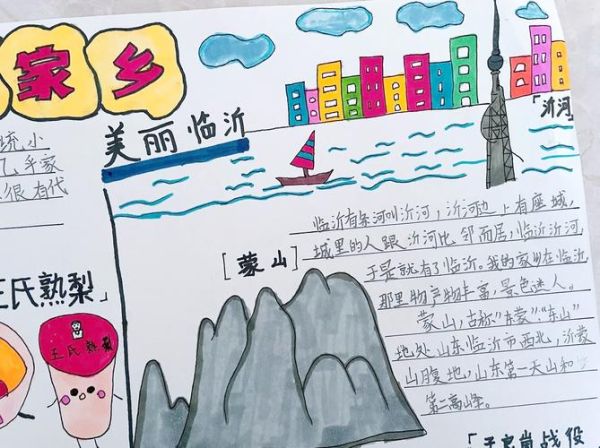 家乡
美丽临沂
「沂河
统小
乙,手家
很有代
临沂有条河叫沂河,沂河边上有座城,
城里的人跟沂河比邻而居,临沂沂河,
于是就有了临沂。我的家田在临沂
那里物产物丰富,景色迷人。
[蒙山]
蒙山,古称"东蒙""东山"
地处山东临沂市西北,沂蒙
山腹地,山东第一天山和
第二高峰。
王氏熟梨」
王氏熟梨
崮战役